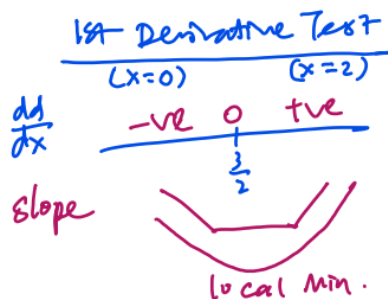 1st Derivative Test
(x=0) (x=2)
dd/dx -ve 0 +ve
3/2
slope
local min.